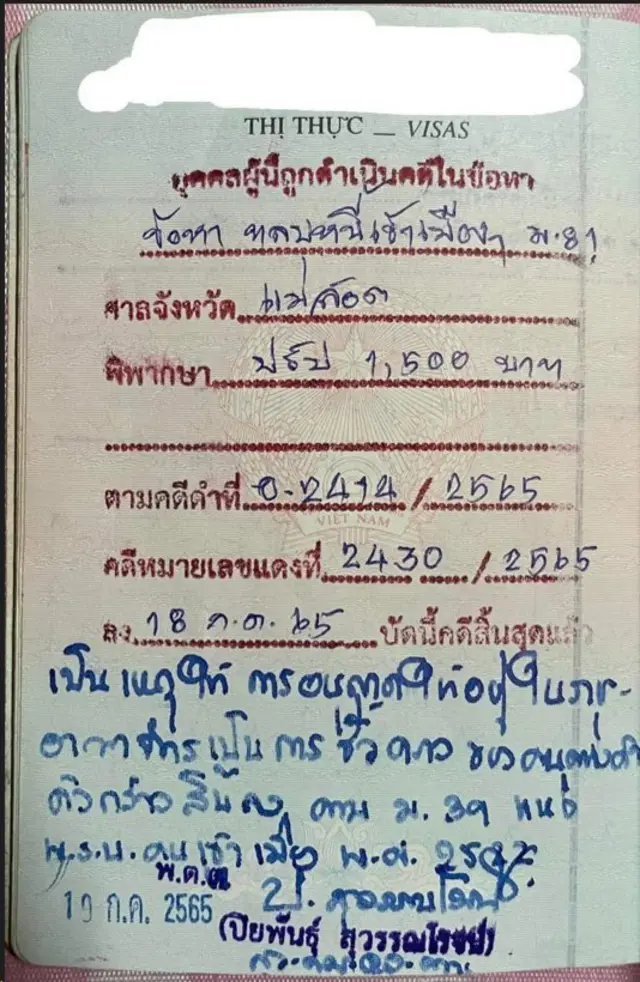 THỊ THỰC _ VISAS
บุคคลผู้นี้ถูกดำเนินคดีในข้อหา
ข้อหา หลบหนีเข้าเมืองฯ
ศาลจังหวัด แม่สอด
พิพากษา ปรับ 1,500 บาท
ตามคดีดำที่ อ.2414 / 2565
VIET NAM
คดีหมายเลขแดงที่ 2430 / 2565
ลง 18 ก.ค. 65 บัดนี้คดีสิ้นสุดแล้ว
เป็นเหตุให้ การอนุญาตให้อยู่ในราช-
อาณาจักรเป็นการชั่วคราว ของคนต่างด้าว
ดังกล่าวสิ้นลง ตาม ม. 39 แห่ง
พ.ร.บ. คนเข้าเมือง พ.ศ. 2522
พ.ต.ต.
19 ก.ค. 2565
(ปิยพันธุ์ สุวรรณโรจน์)